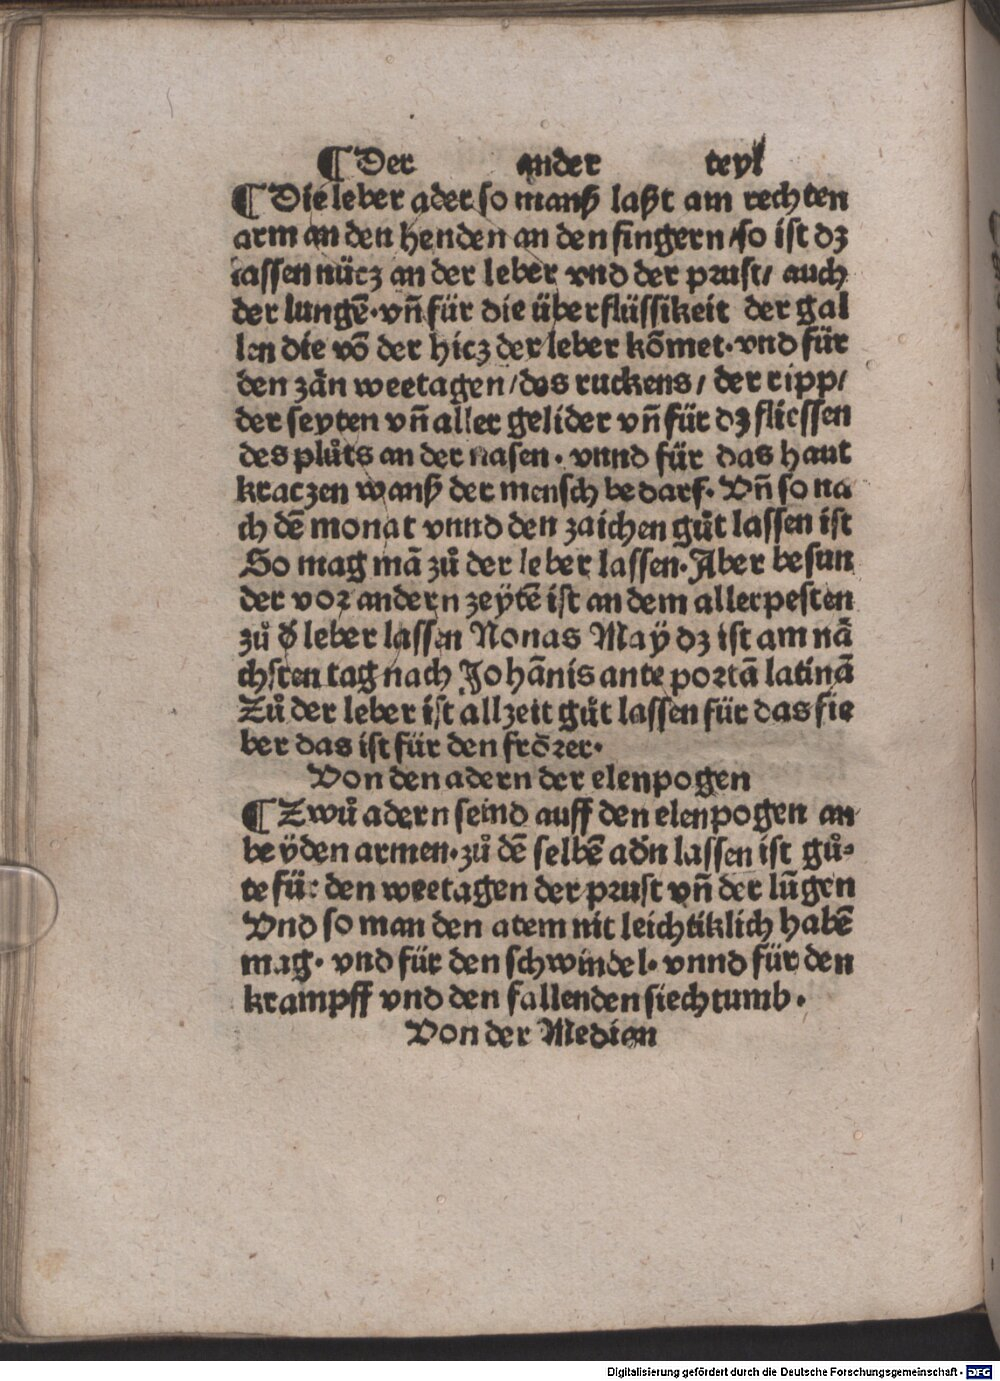 ¶ Der ander teyl
¶ Die leber ader so manß laßt am rechten
arm an den henden an den fingern / so ist dz
lassen nücz an der leber vnd der prust / auch
der lungē · vn̄ für die überflüssikeit der gal
len die vō der hicz der leber kōmet · vnd für
den zän weetagen / des ruckens / der ripp /
der seyten vn̄ aller gelider vn̄ für dz fliessen
des plůts an der nasen · vnnd für das haut
kraczen wanß der mensch bedarf · Vn̄ so na
ch dē monat vnnd den zaichen gůt lassen ist
So mag mā zů der leber lassen · Aber besun
der vor andern zeytē ist an dem allerpesten
zů d' leber lassen Nonas Maÿ dz ist am nä
chsten tag nach Johānis ante portā latinā
Zů der leber ist allzeit gůt lassen für das fie
ber das ist für den frörer ·
Von den adern der elenpogen
¶ Zwů adern seind auff den elenpogen an
beÿden armen · zů dē selbē adn̄ lassen ist gů⸗
te für den weetagen der prust vn̄ der lūgen
Vnd so man den atem nit leichtiklich habē
mag · vnd für den schwindel · vnnd für den
krampff vnd den fallenden siechtumb ·
Von der Median
Digitalisierung gefördert durch die Deutsche Forschungsgemeinschaft - DFG